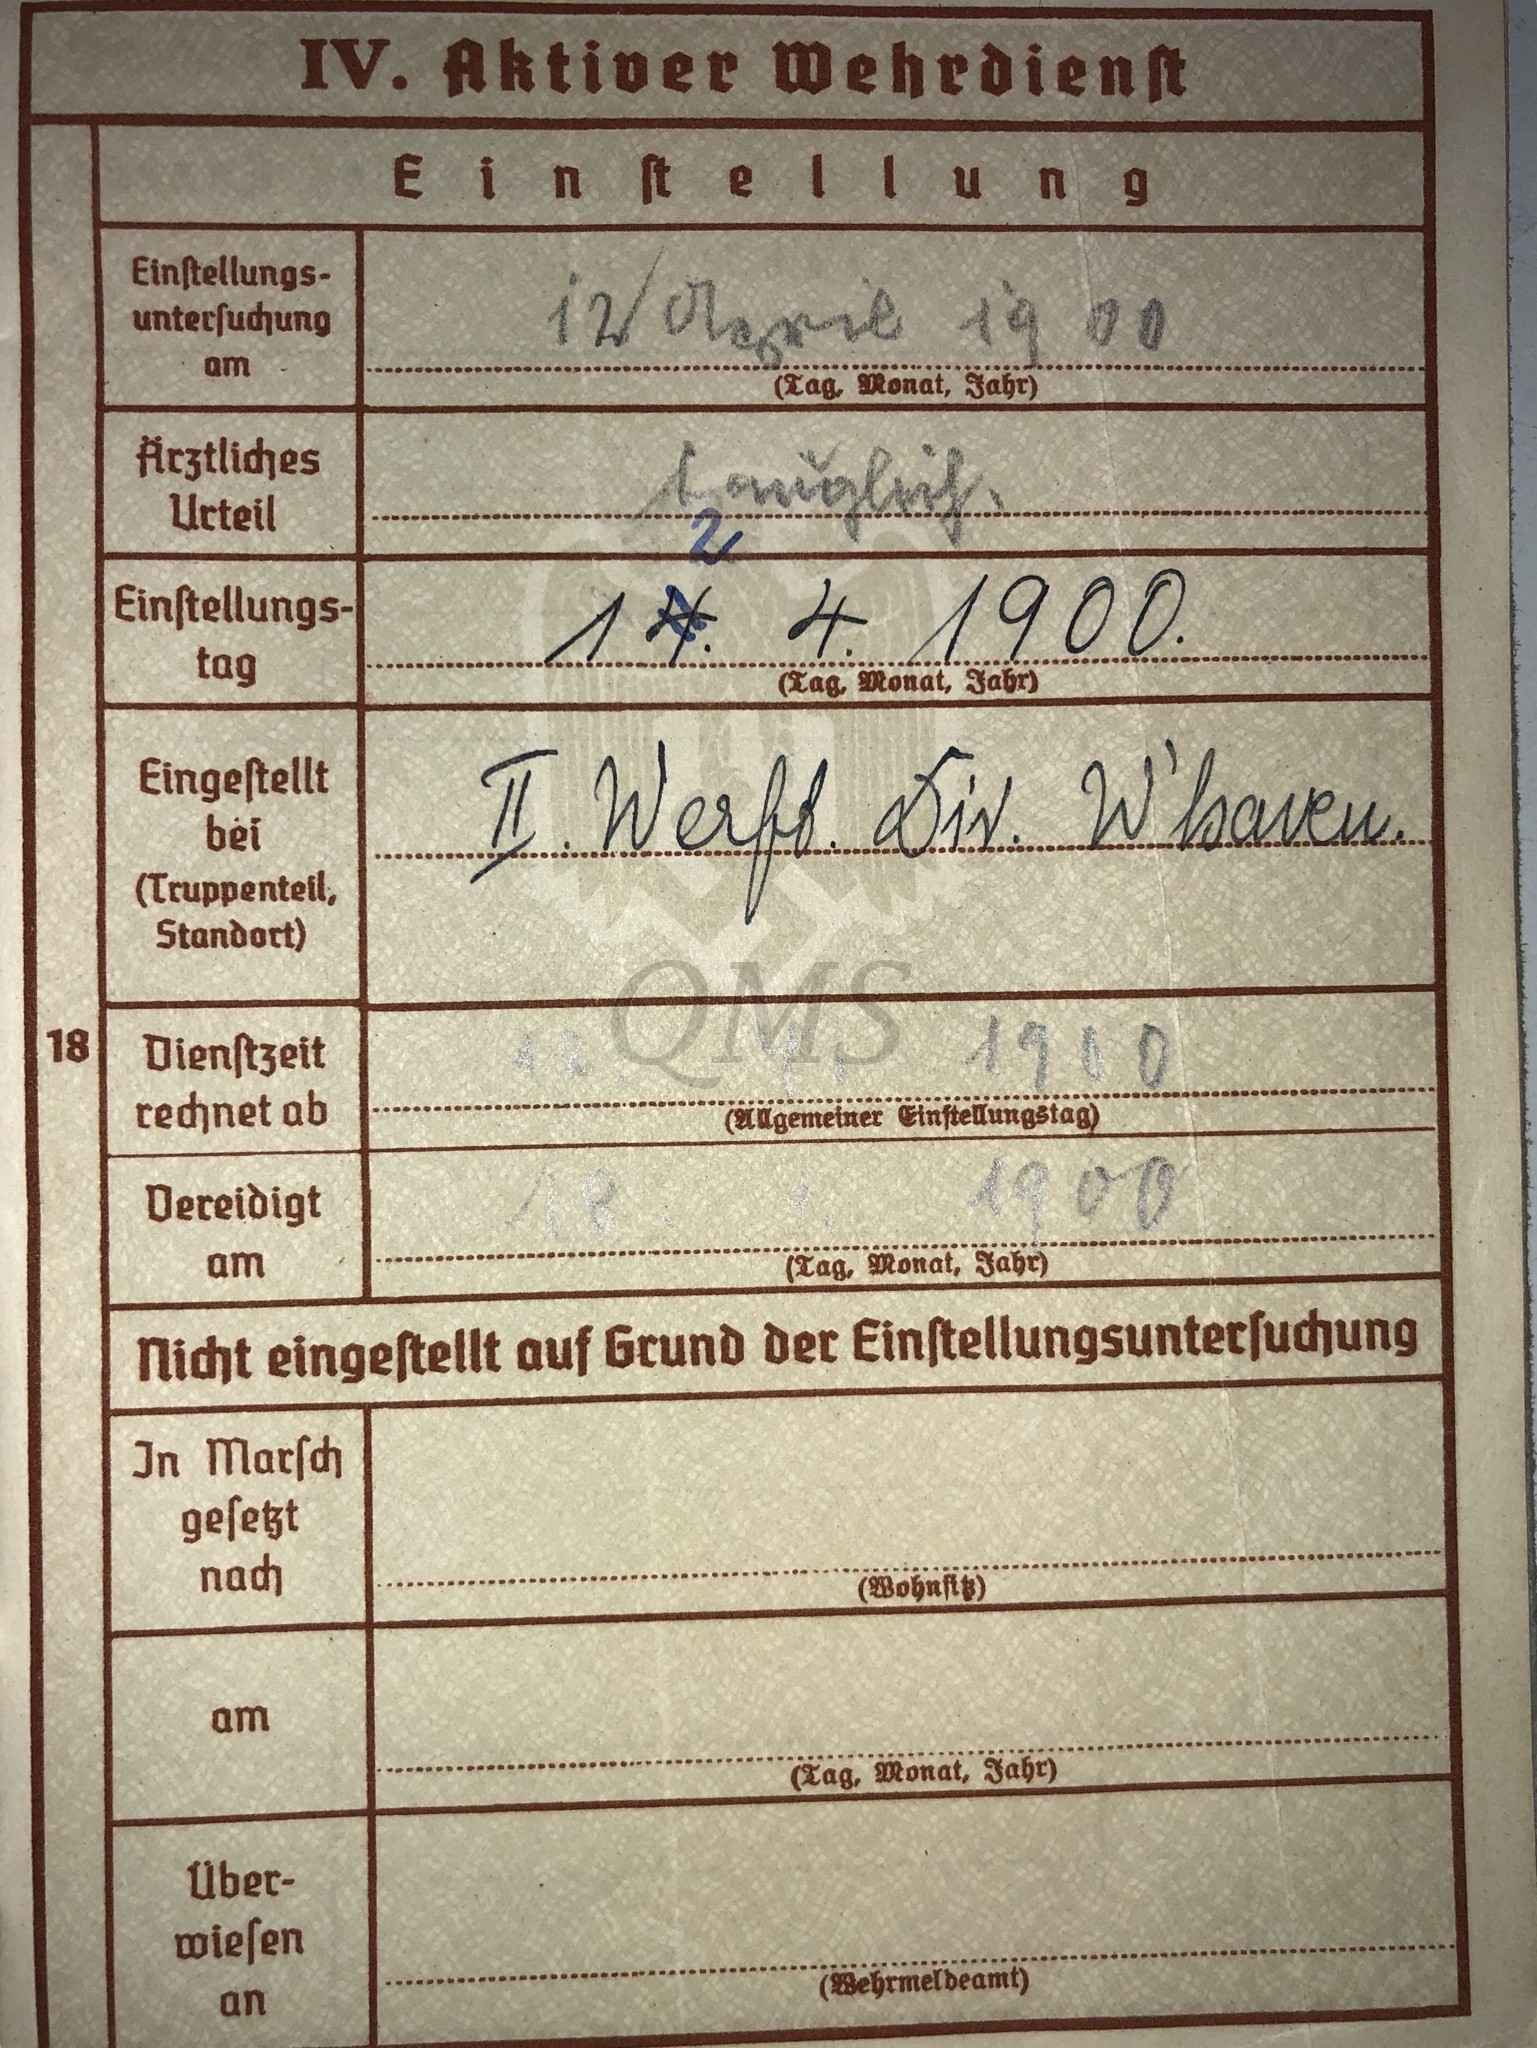 IV. Aktiver Wehrdienst
Einstellung
Einstellungs-
untersuchung
am
12 April 1900
(Tag, Monat, Jahr)
Ärztliches
Urteil
tauglich.
2
Einstellungs-
tag
14. 4. 1900.
(Tag, Monat, Jahr)
Eingestellt
bei
(Truppenteil,
Standort)
II. Werft. Div. W'haven.
QMS
18
Dienstzeit
rechnet ab
12. 4. 1900
(Allgemeiner Einstellungstag)
Vereidigt
am
18. 1900
(Tag, Monat, Jahr)
Nicht eingestellt auf Grund der Einstellungsuntersuchung
In Marsch
gesetzt
nach
(Wohnsitz)
am
(Tag, Monat, Jahr)
Über-
wiesen
an
(Wehrmeldeamt)